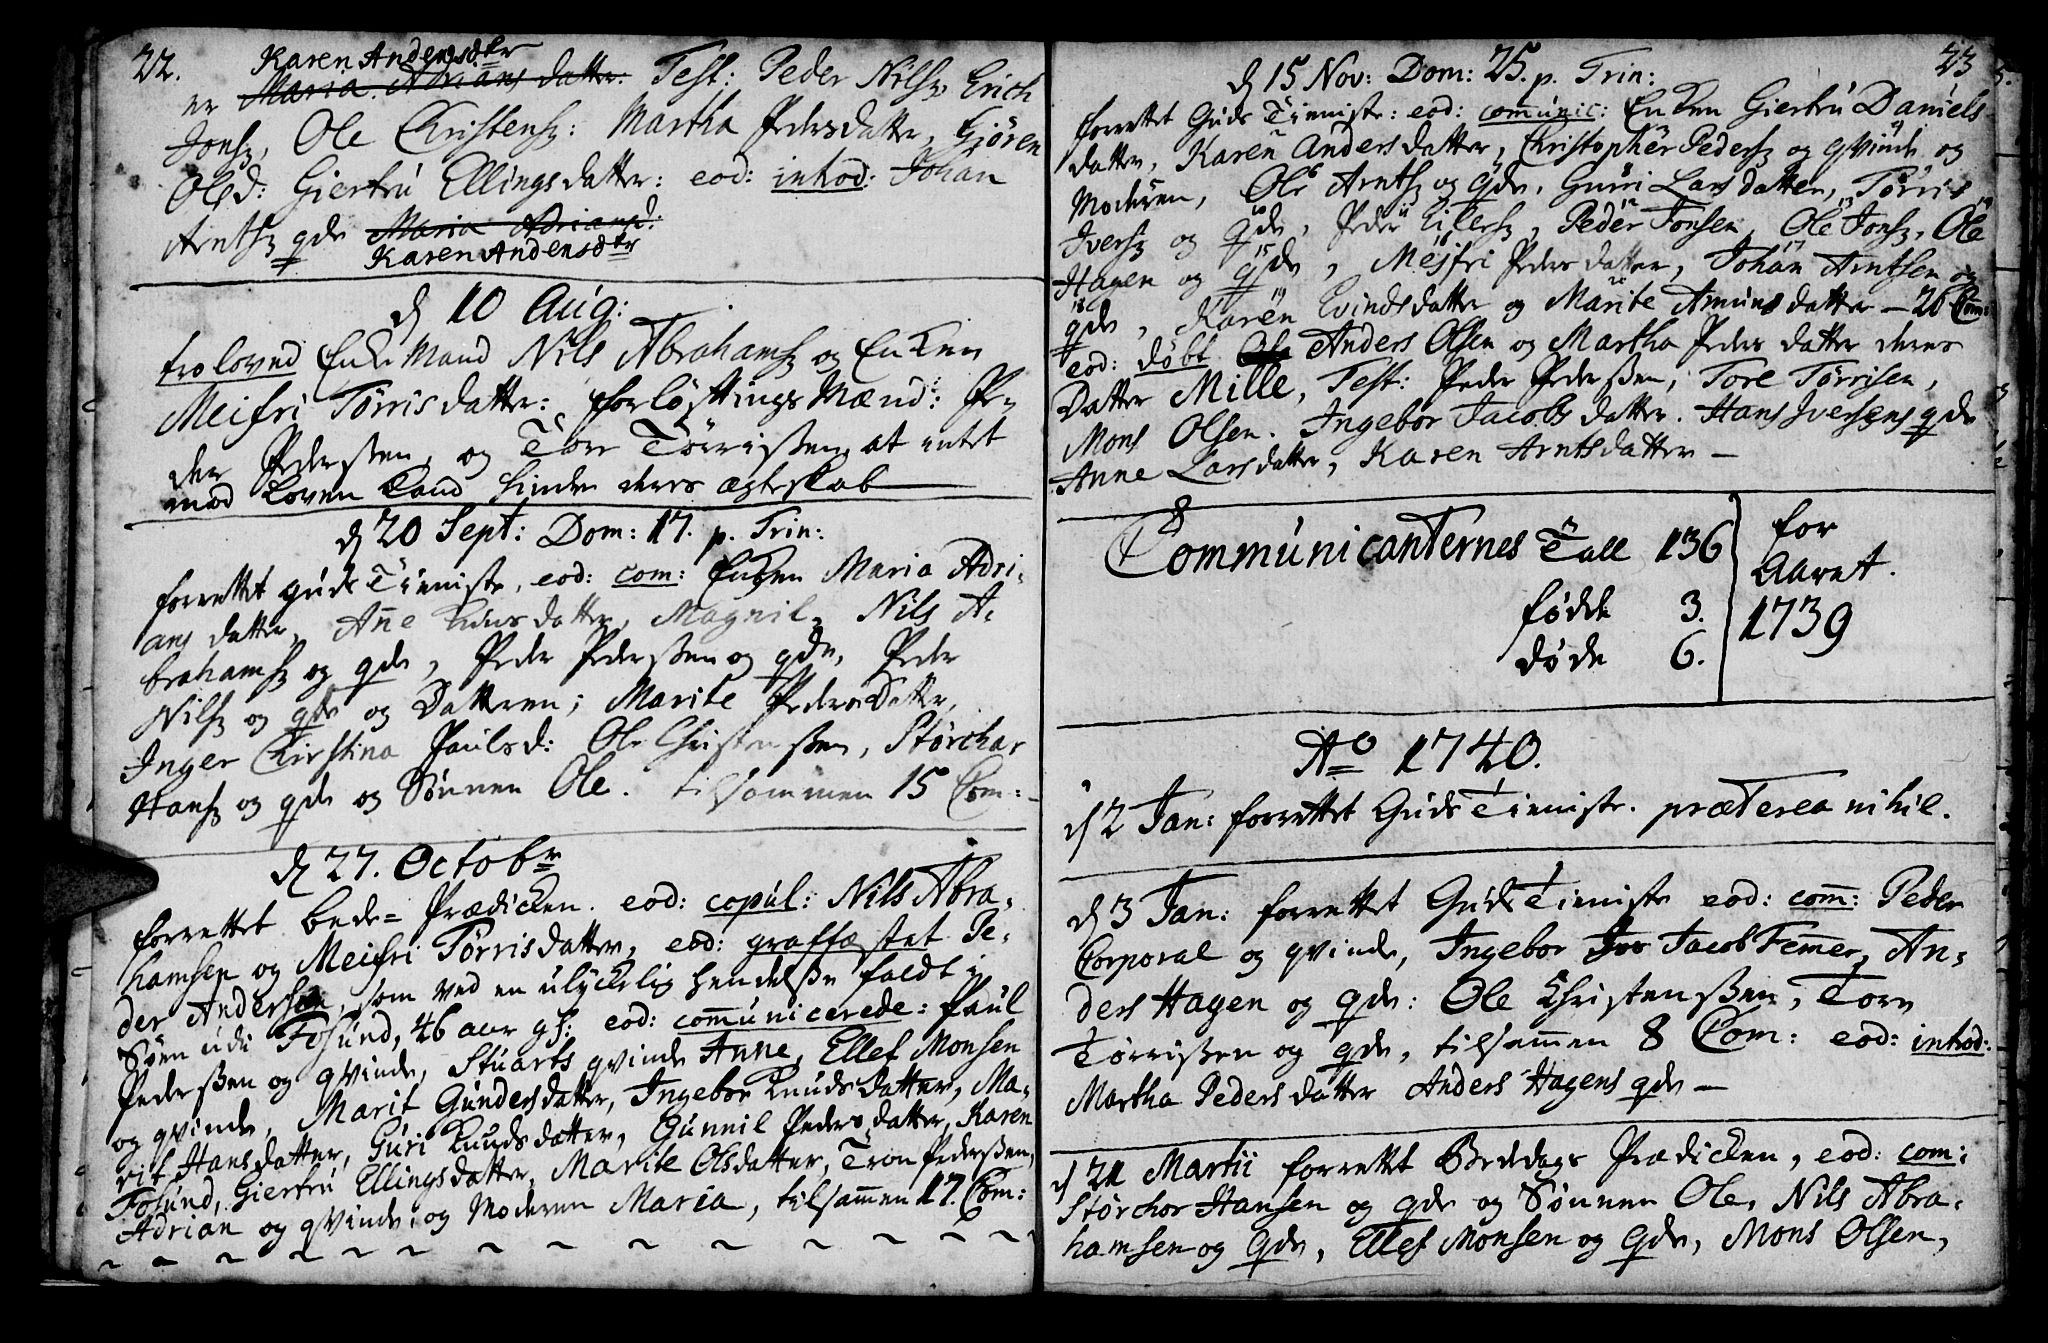 22.
Karen Andersd<sup>tr</sup>
er Maria Adrians datter: Test: Peder Nilss, Erich
Jonss, Ole Christenss: Martha Pedersdatter, Gjören
Olsd: Giertru Ellingsdatter: eod: introd: Johan
Arntss qde Maria Adriansd:
Karen Andersd<sup>tr</sup>
d 10 Aug:
troloved Enke Mand Nils Abrahamss og Enken
Meifri Törrisdatter: forlöftings Mænd: Pe-
der Pederssen, og Tore Törrissen, at intet
mod Loven kand hindre deres ægteskab
d 20 Sept: Dom: 17. p. Trin:
forrettet Guds Tieniste, eod: com: Enken Maria Adri-
ans datter, Añe Knusdatter, Magnil, Nils A-
brahamss og qde, Peder Pederssen og qde, Peder
Nilss og qde og Datteren; Marite Pedersdatter,
Inger Kirstina Paulsd: Ole Christenssen, Störchar
Hanss og qde og Sönnen Ole. tilsammen 15 Com:
d 27. Octob<sup>r</sup>
forrettet bede- Prædicken. eod: copul: Nils Abra-
hamsen og Meifri Törrisdatter, eod: graffæstet Pe-
der Andersen, som ved en ulyckelig hendelse faldt i
Söen udi Fosund, 46 aar gl: eod: com̄unicerede: Paul
Pederssen og qvinde, Stuarts qvinde Anne, Ellef Monsen
og qvinde, Marit Gundersdatter, Ingebor Knudsdatter, Ma-
rit Hansdatter, Guri Knudsdatter, Gunnil Pedersdatter, Karen
Fosund, Giertru Ellingsdatter, Marite Olsdatter, Tron Pederssen,
Adrian og qvinde, og Moderen Maria, tilsam̄en 17. Com:
23
d 15 Nov: Dom: 25. p. Trin:
forrettet Guds Tieniste: eod: com̄unic: Enken Giertru Daniels
datter, Karen Andersdatter, Christopher Pederss og qvinde og
Moderen, Ole Arntss og qde, Guri Larsdatter, Törris
Iverss og qde, Peder Eilerss, Peder Jonsen, Ole Jonss, Ole
Hagen og qde, Mejfri Pedersdatter, Johan Arntsen og
qde, Karen Evindsdatter og Marite Amunsdatter — 20 Com:
eod: döbt Ole Anders Olsen og Martha Pedersdatter deres
Datter Mille, Test: Peder Pederssen, Tore Törrisen,
Mons Olsen. Ingebor Jacobsdatter. Hans Iversens qde
Anne Larsdatter, Karen Arntsdatter —
Communicanternes Tall 136
födde 3.
döde 6.
for
Aaret.
1739
A<sup>o</sup> 1740.
d 2 Jan: forrettet Guds Tieniste. præterea nihil.
d 3 Jan: forrettet Guds Tieniste eod: com̄: Peder
Corporal og qvinde, Ingebor Jos Jacob Femer, An-
ders Hagen og qde: Ole Christenssen, Tore
Törrissen og qde, tilsam̄en 8 Com: eod: introd:
Martha Pedersdatter Anders Hagens qde —
d 21 Martii forrettet Bededags Prædicken, eod: com:
Störchor Hansen og qde og Sönnen Ole, Nils Abra-
hamsen og Qde, Ellef Monsen og Qde, Mons Olsen,